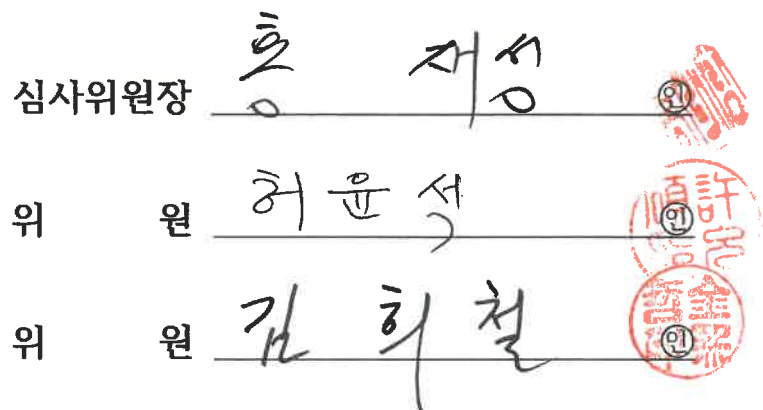 심사위원장 홍 재성 ㊞
위 원 허윤석 ㊞
위 원 김 희 철 ㊞